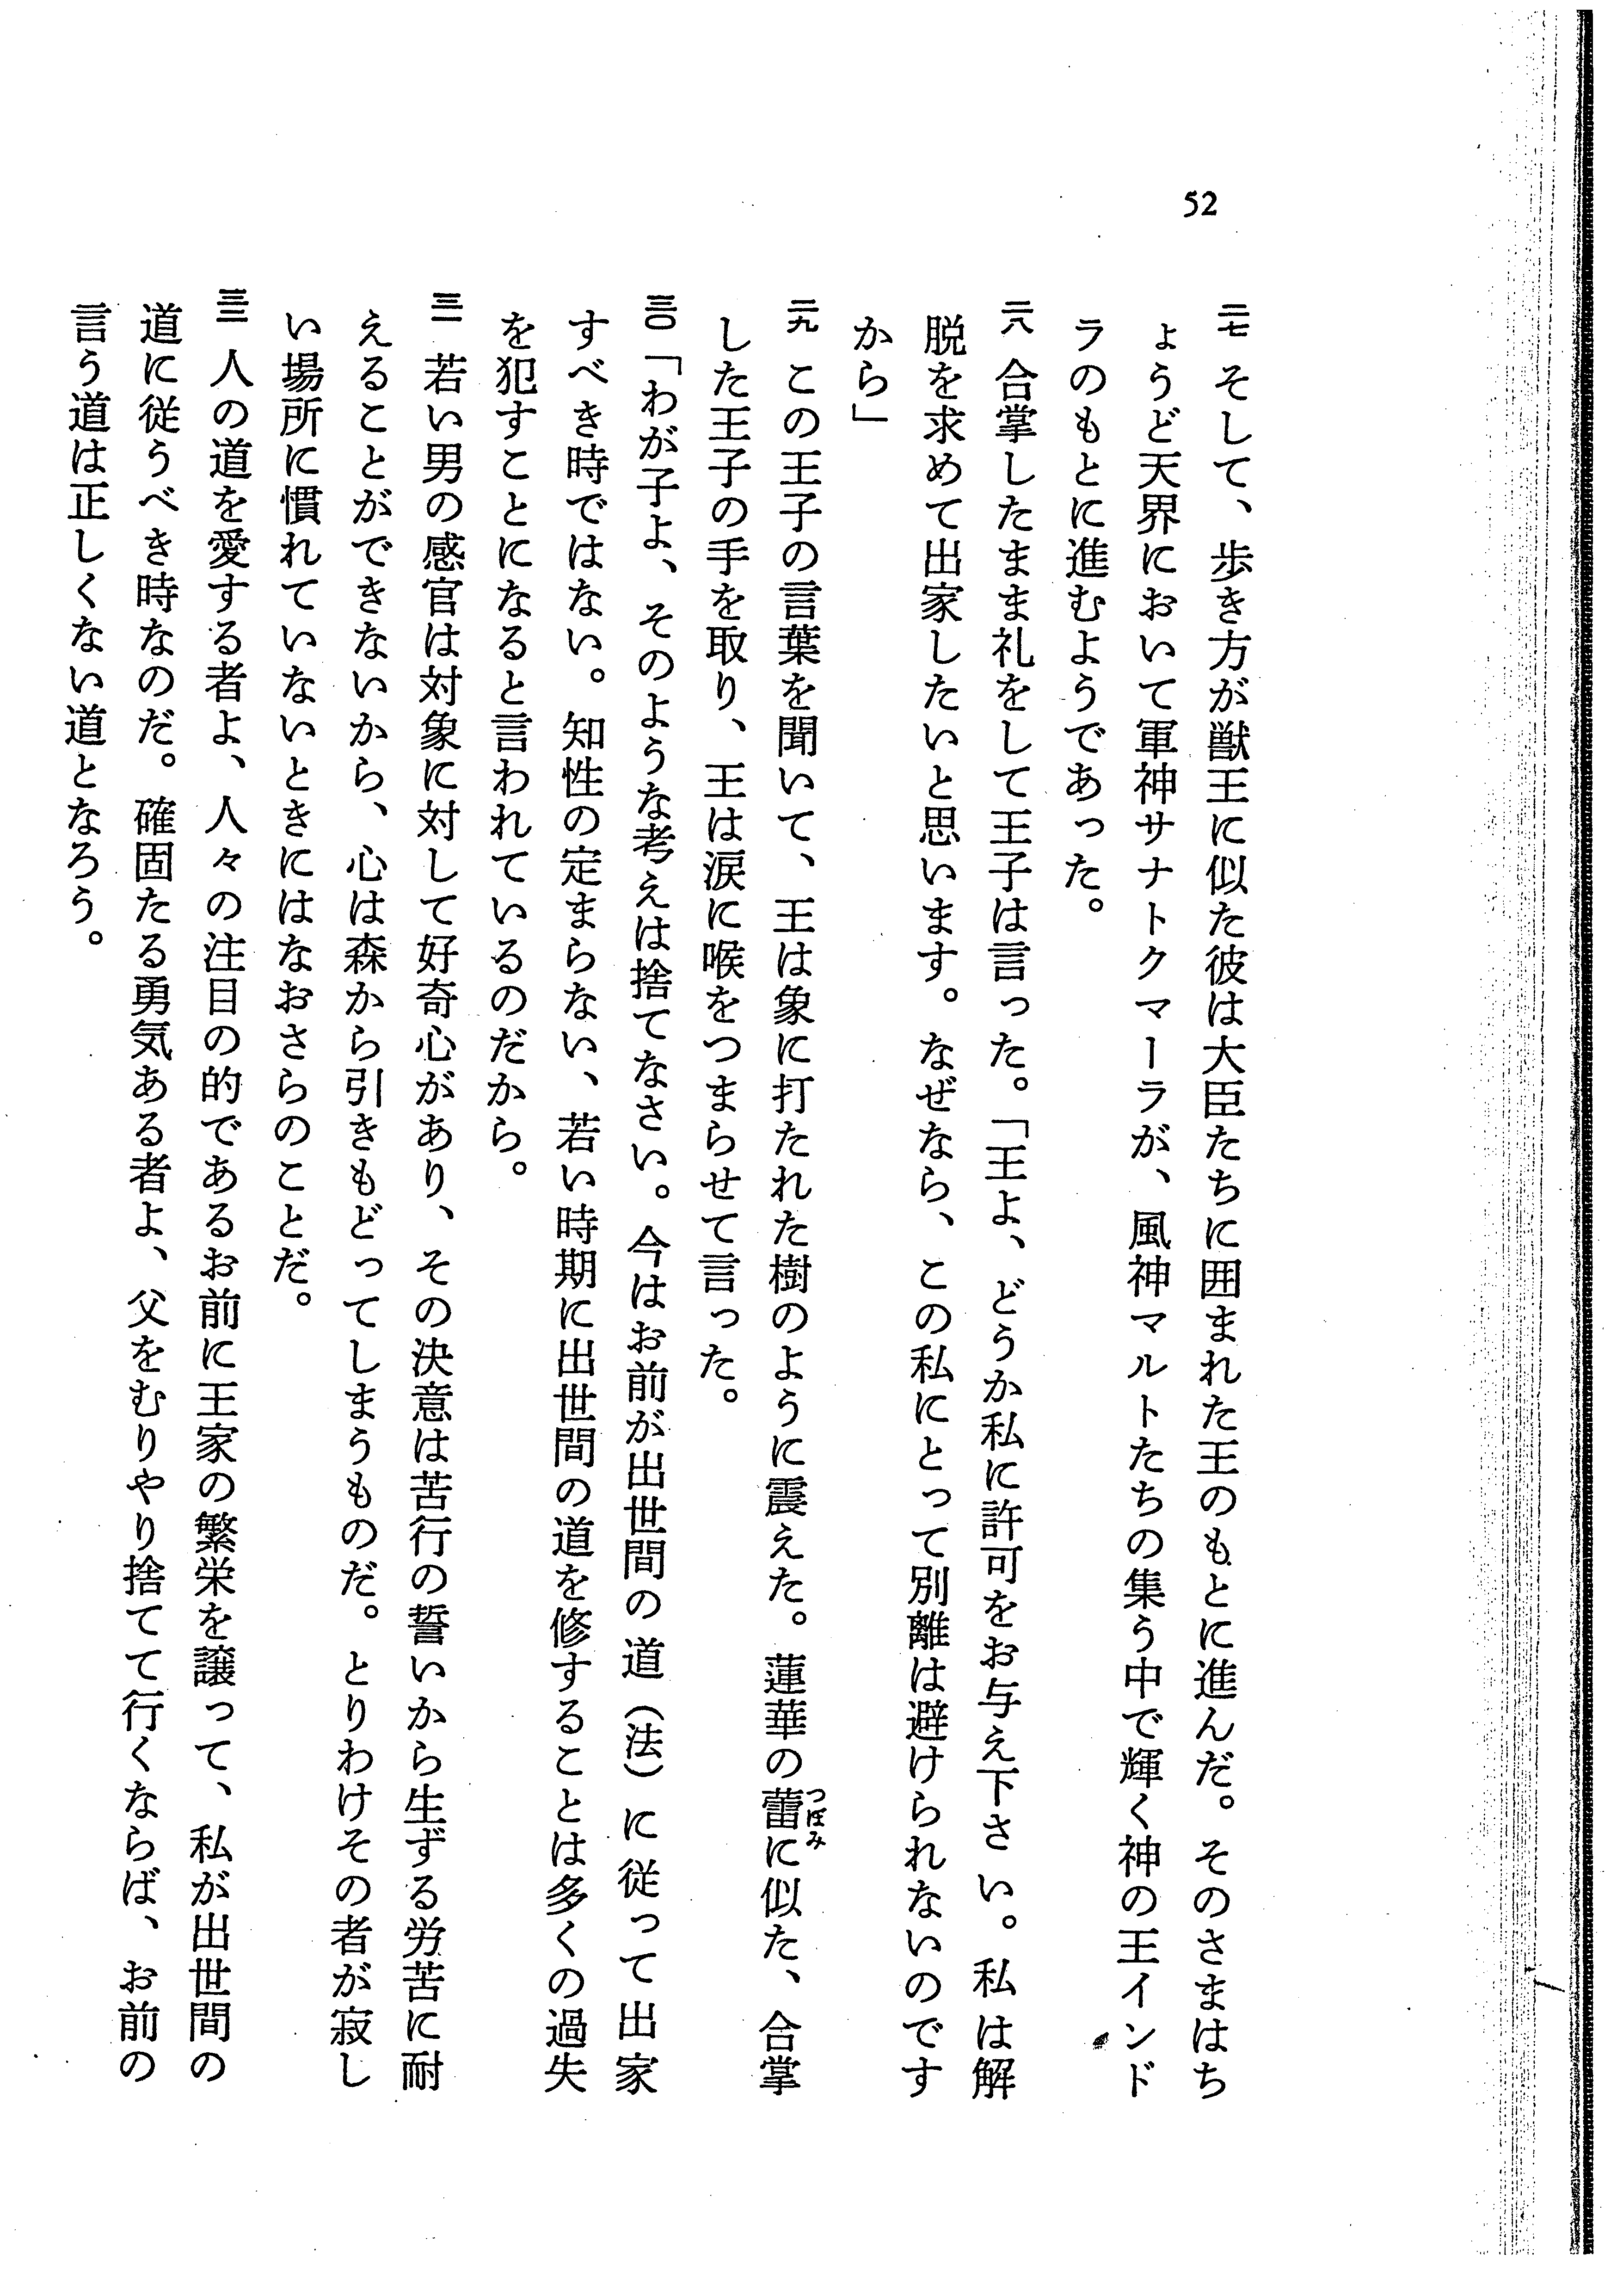 52
二七 そして、歩き方が獣王に似た彼は大臣たちに囲まれた王のもとに進んだ。そのさまはち
ょうど天界において軍神サナトクマーラが、風神マルトたちの集う中で輝く神の王インド
ラのもとに進むようであった。
二八 合掌したまま礼をして王子は言った。「王よ、どうか私に許可をお与え下さい。私は解
脱を求めて出家したいと思います。なぜなら、この私にとって別離は避けられないのです
から」
二九 この王子の言葉を聞いて、王は象に打たれた樹のように震えた。蓮華の蕾つぼみに似た、合掌
した王子の手を取り、王は涙に喉をつまらせて言った。
三〇 「わが子よ、そのような考えは捨てなさい。今はお前が出世間の道（法）に従って出家
すべき時ではない。知性の定まらない、若い時期に出世間の道を修することは多くの過失
を犯すことになると言われているのだから。
三一 若い男の感官は対象に対して好奇心があり、その決意は苦行の誓いから生ずる労苦に耐
えることができないから、心は森から引きもどってしまうものだ。とりわけその者が寂し
い場所に慣れていないときにはなおさらのことだ。
三二 人の道を愛する者よ、人々の注目の的であるお前に王家の繁栄を譲って、私が出世間の
道に従うべき時なのだ。確固たる勇気ある者よ、父をむりやり捨てて行くならば、お前の
言う道は正しくない道となろう。